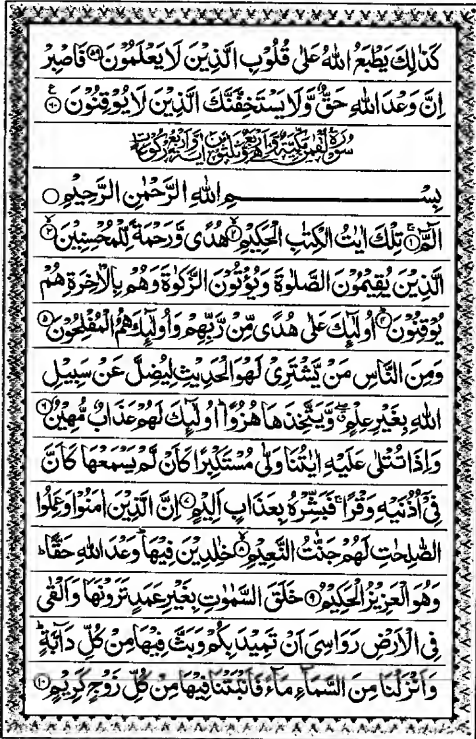 كَذٰلِكَ يَطْبَعُ اللّٰهُ عَلٰى قُلُوْبِ الَّذِيْنَ لَا يَعْلَمُوْنَ ۵۹ فَاصْبِرْ
اِنَّ وَعْدَ اللّٰهِ حَقٌّ وَّلَا يَسْتَخِفَّنَّكَ الَّذِيْنَ لَا يُوْقِنُوْنَ ۶۰
سُوْرَةُ لُقْمٰنَ مَكِّيَّةٌ وَّهِيَ اَرْبَعٌ وَّثَلٰثُوْنَ اٰيَةً وَّاَرْبَعُ رُكُوْعَاتٍ
بِسْمِ اللّٰهِ الرَّحْمٰنِ الرَّحِيْمِ
الٓمّٓ ۱ تِلْكَ اٰيٰتُ الْكِتٰبِ الْحَكِيْمِ ۲ هُدًى وَّرَحْمَةً لِّلْمُحْسِنِيْنَ ۳
الَّذِيْنَ يُقِيْمُوْنَ الصَّلٰوةَ وَيُؤْتُوْنَ الزَّكٰوةَ وَهُمْ بِالْاٰخِرَةِ هُمْ
يُوْقِنُوْنَ ۴ اُولٰٓئِكَ عَلٰى هُدًى مِّنْ رَّبِّهِمْ وَاُولٰٓئِكَ هُمُ الْمُفْلِحُوْنَ ۵
وَمِنَ النَّاسِ مَنْ يَّشْتَرِيْ لَهْوَ الْحَدِيْثِ لِيُضِلَّ عَنْ سَبِيْلِ
اللّٰهِ بِغَيْرِ عِلْمٍ وَّيَتَّخِذَهَا هُزُوًا اُولٰٓئِكَ لَهُمْ عَذَابٌ مُّهِيْنٌ ۶
وَاِذَا تُتْلٰى عَلَيْهِ اٰيٰتُنَا وَلّٰى مُسْتَكْبِرًا كَاَنْ لَّمْ يَسْمَعْهَا كَاَنَّ
فِيْٓ اُذُنَيْهِ وَقْرًا فَبَشِّرْهُ بِعَذَابٍ اَلِيْمٍ ۷ اِنَّ الَّذِيْنَ اٰمَنُوْا وَعَمِلُوا
الصّٰلِحٰتِ لَهُمْ جَنّٰتُ النَّعِيْمِ ۸ خٰلِدِيْنَ فِيْهَا وَعْدَ اللّٰهِ حَقًّا
وَهُوَ الْعَزِيْزُ الْحَكِيْمُ ۹ خَلَقَ السَّمٰوٰتِ بِغَيْرِ عَمَدٍ تَرَوْنَهَا وَاَلْقٰى
فِي الْاَرْضِ رَوَاسِيَ اَنْ تَمِيْدَ بِكُمْ وَبَثَّ فِيْهَا مِنْ كُلِّ دَآبَّةٍ
وَاَنْزَلْنَا مِنَ السَّمَآءِ مَآءً فَاَنْۢبَتْنَا فِيْهَا مِنْ كُلِّ زَوْجٍ كَرِيْمٍ ۱۰